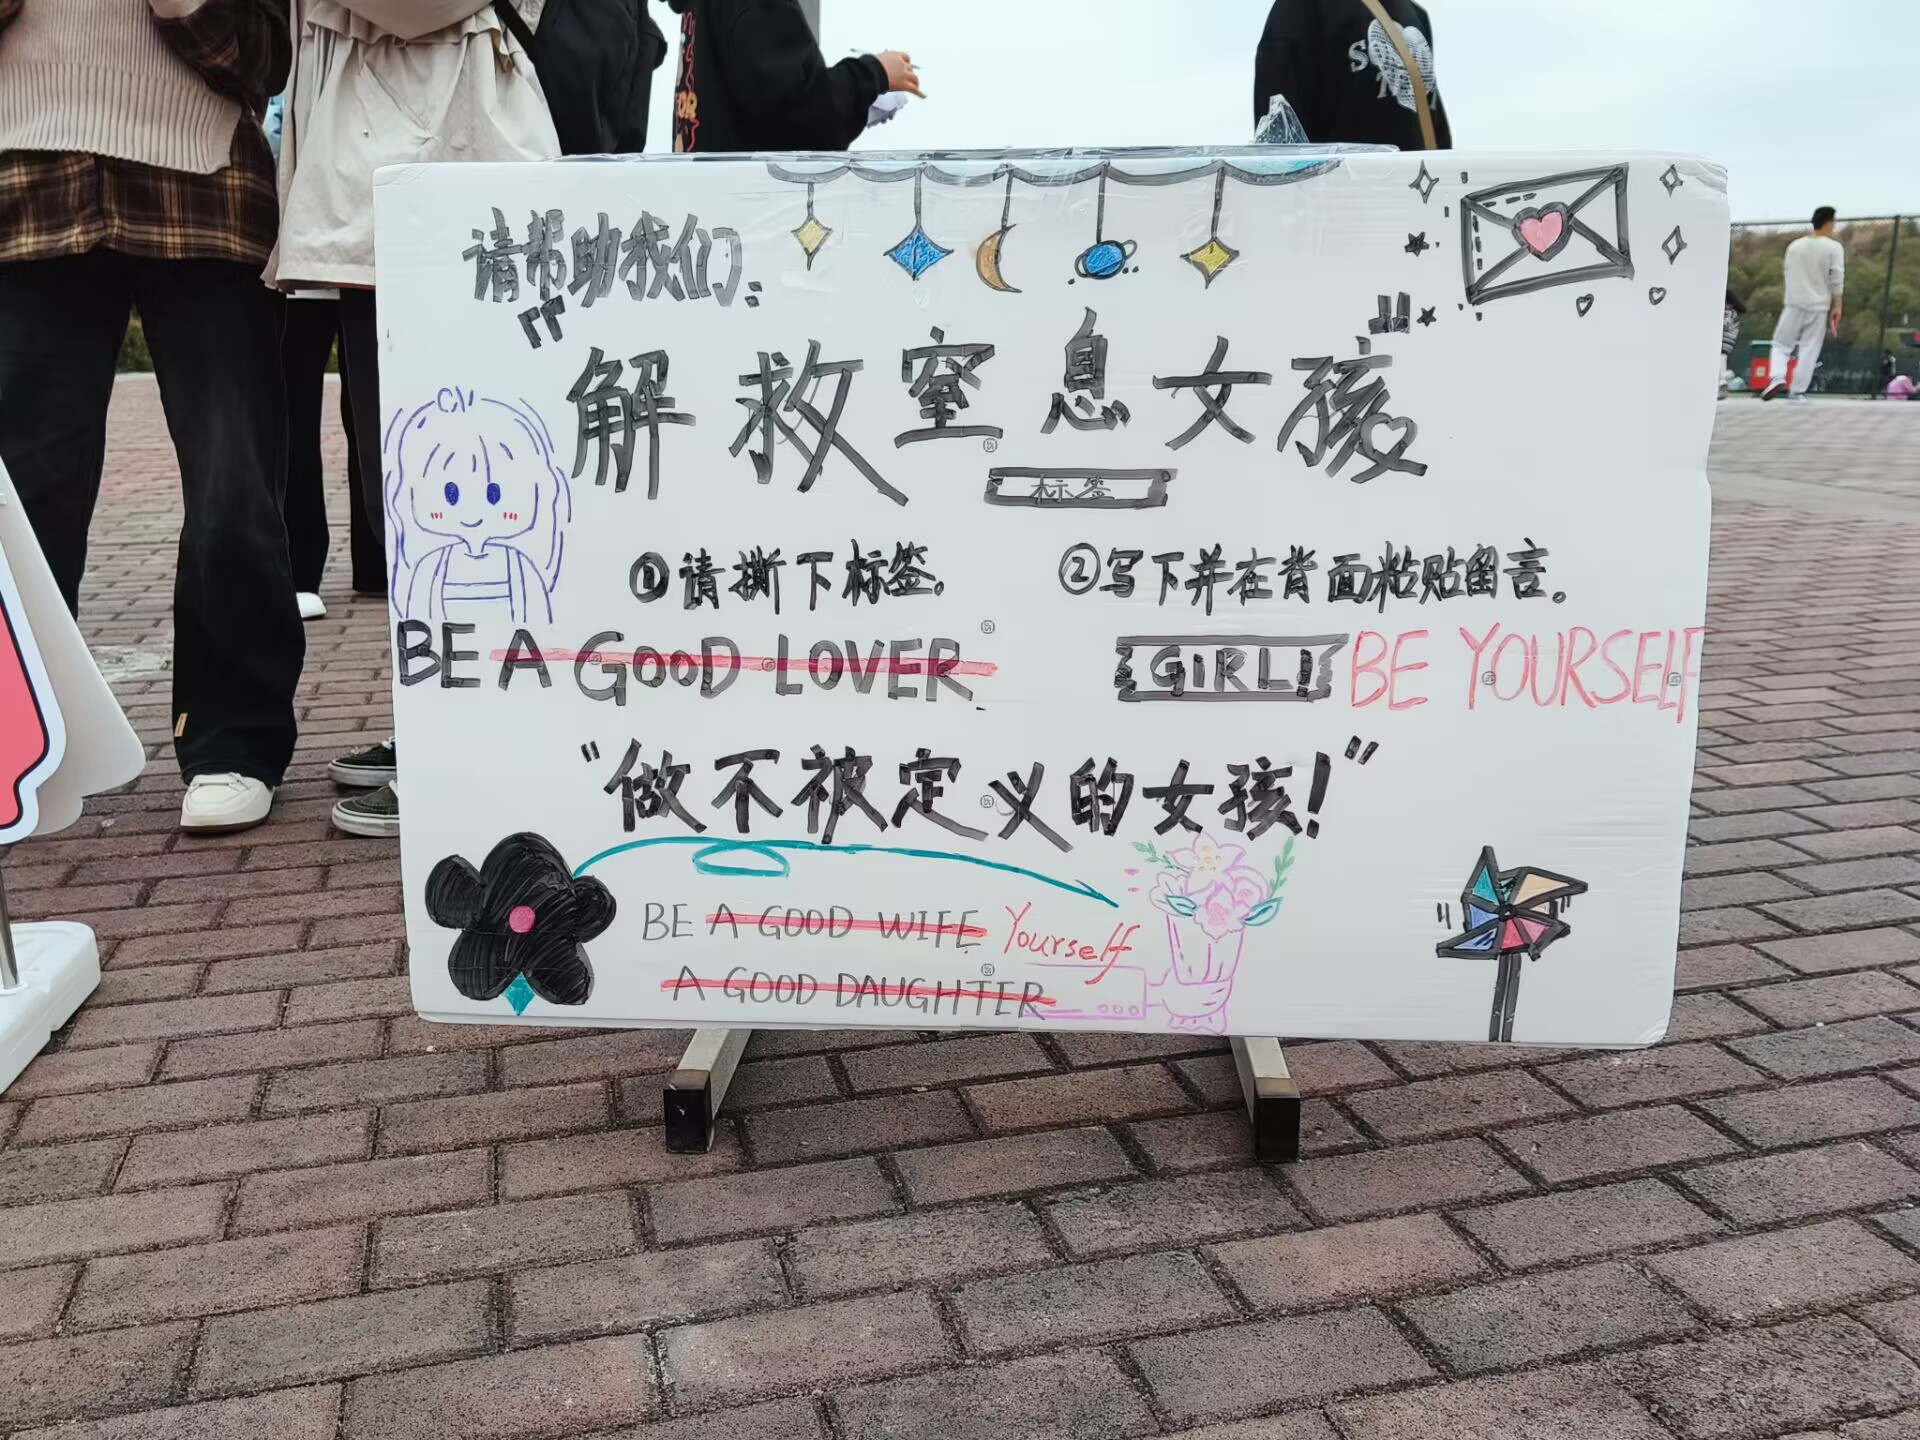 请帮助我们:
"解救窒息女孩"
标签
①请撕下标签。 ②写下并在背面粘贴留言。
BE A GOOD LOVER. GIRL! BE YOURSELF
"做不被定义的女孩!"
BE A GOOD WIFE Yourself
A GOOD DAUGHTER